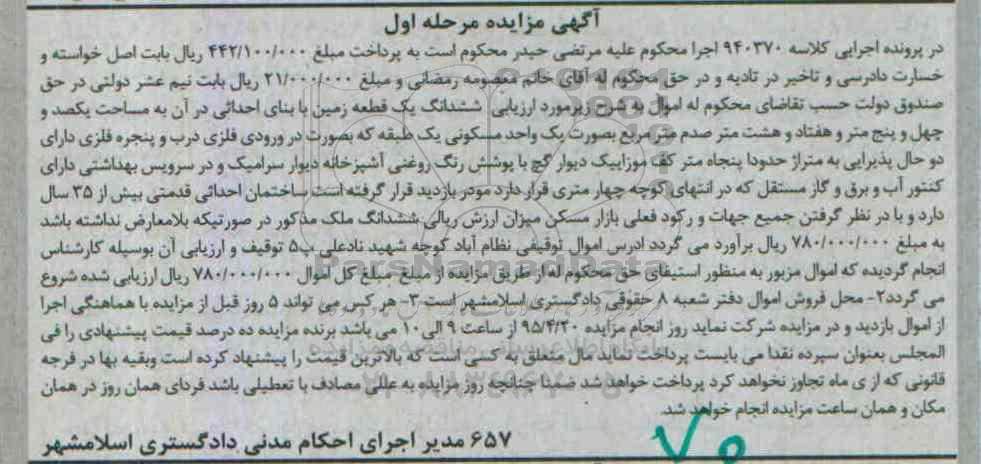 آگهی مزایده مرحله اول
در پرونده اجرایی کلاسه ۹۴۰۳۷۰ اجرا محکوم علیه مرتضی حیدر محکوم است به پرداخت مبلغ ۴۴۲/۱۰۰/۰۰۰ ریال بابت اصل خواسته و
خسارت دادرسی و تاخیر در تادیه و در حق محکوم له آقای خانم معصومه رمضانی و مبلغ ۲۱/۰۰۰/۰۰۰ ریال بابت نیم عشر دولتی در حق
صندوق دولت حسب تقاضای محکوم له اموال به شرح زیرمورد ارزیابی ششدانگ یک قطعه زمین با بنای احداثی در آن به مساحت یکصد و
چهل و پنج متر و هفتاد و هشت متر صدم متر مربع بصورت یک واحد مسکونی یک طبقه که بصورت در ورودی فلزی درب و پنجره فلزی دارای
دو حال پذیرایی به متراژ حدودا پنجاه متر کف موزاییک دیوار گچ با پوشش رنگ روغنی آشپزخانه دیوار سرامیک و در سرویس بهداشتی دارای
کنتور آب و برق و گاز مستقل که در انتهای کوچه چهار متری قرار دارد مودر بازدید قرار گرفته است ساختمان احداثی قدمتی بیش از ۳۵ سال
دارد و با در نظر گرفتن جمیع جهات و رکود فعلی بازار مسکن میزان ارزش ریالی ششدانگ ملک مذکور در صورتیکه بلامعارض نداشته باشد
به مبلغ ۷۸۰/۰۰۰/۰۰۰ ریال برآورد می گردد ادرس اموال توقیفی نظام آباد کوچه شهید نادعلی پ۵ توقیف و ارزیابی آن بوسیله کارشناس
انجام گردیده که اموال مزبور به منظور استیفای حق محکوم له از طریق مزایده از مبلغ مبلغ کل اموال ۷۸۰/۰۰۰/۰۰۰ ریال ارزیابی شده شروع
می گردد۲- محل فروش اموال دفتر شعبه ۸ حقوقی دادگستری اسلامشهر است ۳- هر کس می تواند ۵ روز قبل از مزایده با هماهنگی اجرا
از اموال بازدید و در مزایده شرکت نماید روز انجام مزایده ۹۵/۴/۲۰ از ساعت ۹ الی ۱۰ می باشد برنده مزایده ده درصد قیمت پیشنهادی را فی
المجلس بعنوان سپرده نقدا می بایست پرداخت نماید مال متعلق به کسی است که بالاترین قیمت را پیشنهاد کرده است وبقیه بها در فرجه
قانونی که از ی ماه تجاوز نخواهد کرد پرداخت خواهد شد ضمنا چنانچه روز مزایده به عللی مصادف با تعطیلی باشد فردای همان روز در همان
مکان و همان ساعت مزایده انجام خواهد شد.
۶۵۷ مدیر اجرای احکام مدنی دادگستری اسلامشهر
۷۵